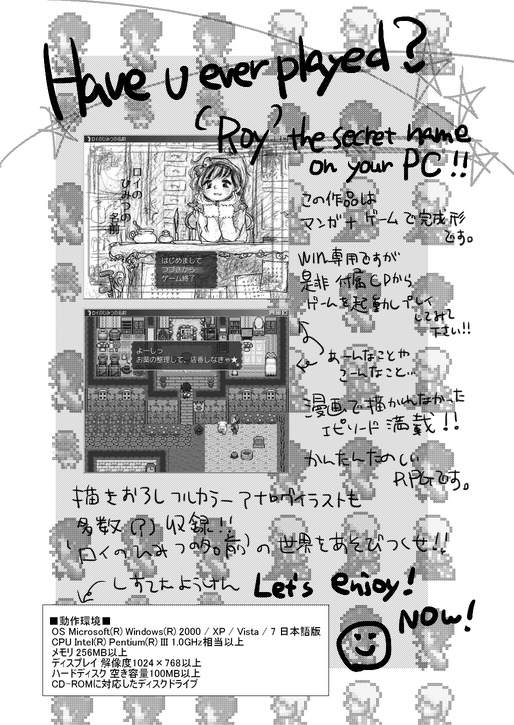 Have u ever played?
(Roy) the secret name
on your PC!!
ロイのひみつの名前
ロイの
ひみつの
名前
はじめまして
つづきから
ゲーム終了
この作品は
マンガ+ゲームで完成形
です。
WIN専用ですが
是非付属CDから
ゲームを起動しプレイ
してみて
下さい!!
よーしっ
お薬の整理して、店番しなきゃ★
あーんなことや
こーんなこと…
漫画で描かれなかった
エピソード満載!!
かんたんたのしい
RPGです。
描きおろしフルカラーアナログイラストも
多数(?)収録!!
『ロイのひみつの名前』の世界をあそびつくせ!!
しすてむようけん
Let's enjoy!
NOW!
■動作環境■
OS Microsoft(R) Windows(R) 2000 / XP / Vista / 7 日本語版
CPU Intel(R) Pentium(R) III 1.0GHz相当以上
メモリ 256MB以上
ディスプレイ 解像度1024×768以上
ハードディスク 空き容量100MB以上
CD-ROMに対応したディスクドライブ